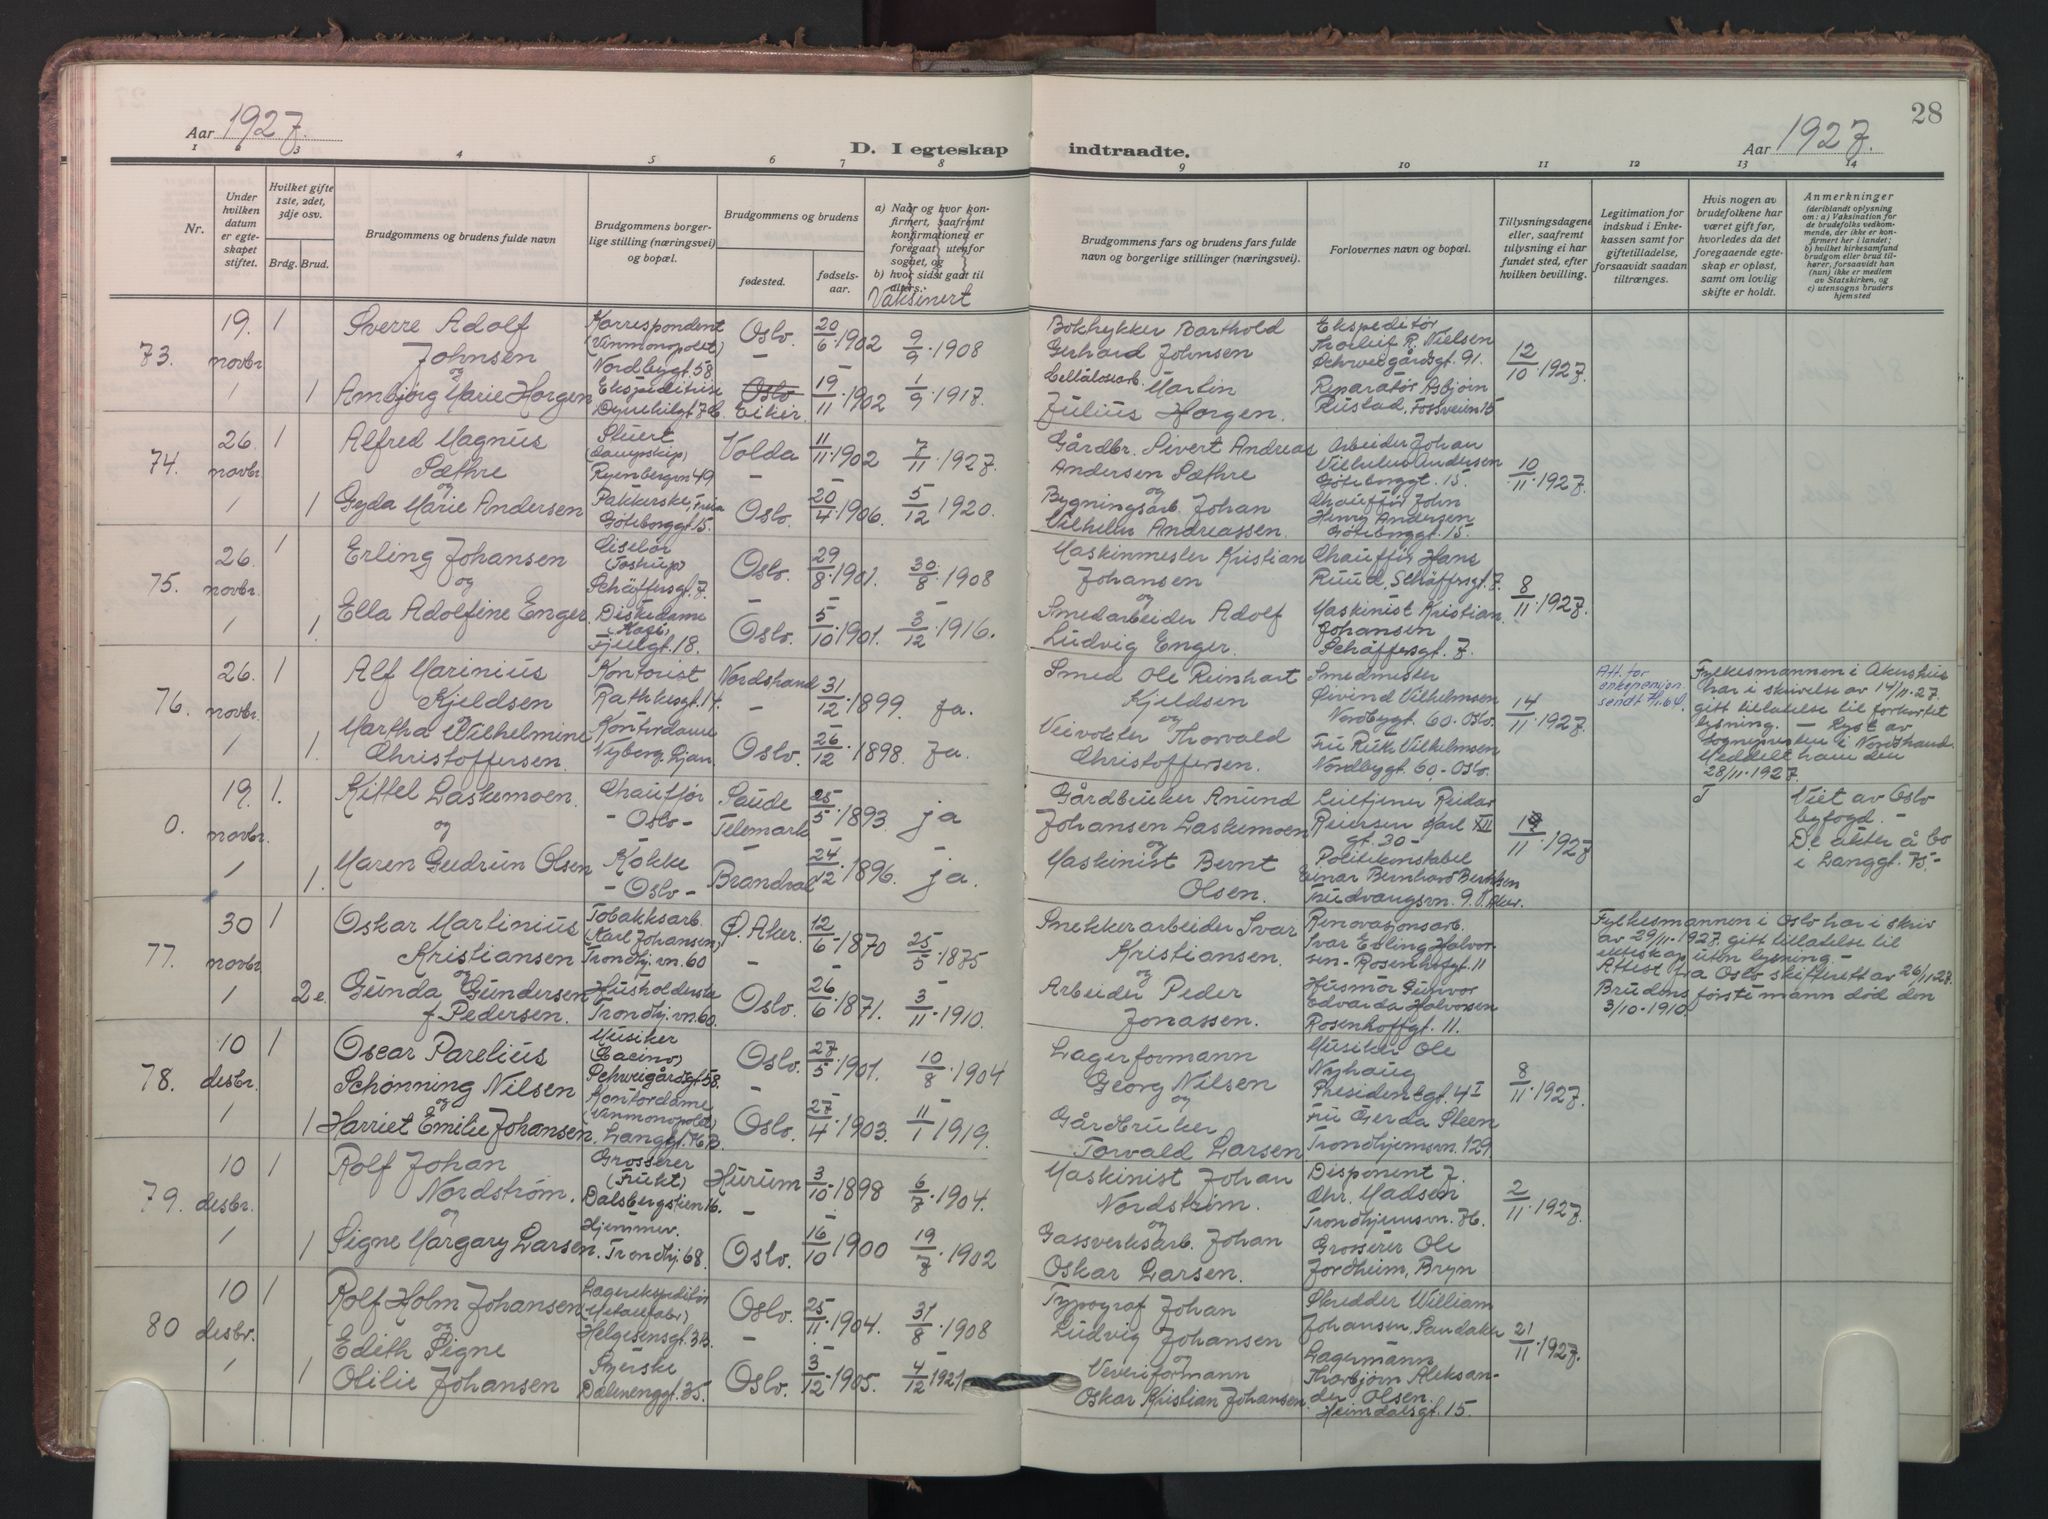 28
Aar 1927.
D. I egteskap indtraadte.
Aar 1927.
1 2 3 4 5 6 7 8 9 10 11 12 13 14
Nr.
Under hvilken datum er egteskapet stiftet.
Hvilket gifte 1ste, 2det, 3dje osv.
Brdg. Brud.
Brudgommens og brudens fulde navn
Brudgommens borgerlige stilling (næringsvei) og bopæl.
Brudgommens og brudens
fødested.
fødselsaar.
a) Naar og hvor konfirmert, saafremt konfirmationen er foregaat utenfor sognet, og
b) hvor sidst gaat til alters.
Vaksinert
Brudgommens fars og brudens fars fulde navn og borgerlige stillinger (næringsvei).
Forlovernes navn og bopæl.
Tillysningsdagene eller, saafremt tillysning ei har fundet sted, efter hvilken bevilling.
Legitimation for indskud i Enkekassen samt for giftetilladelse, forsaavidt saadan tiltrænges.
Hvis nogen av brudefolkene har været gift før, hvorledes da det foregaaende egteskap er opløst, samt om lovlig skifte er holdt.
Anmerkninger
(deriblandt oplysning om: a) Vaksination for de brudefolks vedkommende, der ikke er konfirmert her i landet; b) hvilket kirkesamfund brudgom eller brud tilhører, forsaavidt han (hun) ikke er medlem av Statskirken, og c) utensogns bruders hjemsted
73.
19. novbr.
1
Sverre Adolf
Johnsen
og
Korrespondent
(Vinmonopolet)
Nordbygt. 58
Oslo.
20/6 1902
9/9 1908
Bokhykker Barthold
Gerhard Johnsen
Ekspeditør
Thorleif R. Nielsen
Schweigårdsgt. 91.
12/10 1927.
1
Ambjørg Marie Horgen
Ekspeditrise
Oslo
Eiker
19/11 1902
1/9 1917.
Cellulosearb. Martin
Julius Horgen.
Reparatør Asbjørn
Rustad, Fossveien 15
74.
26. novbr.
1
Alfred Magnus
Sæthre
og
Stuert
(Dampskip)
Ryenbergvn 49
Volda
11/11 1902
7/11 1927.
Gårdbr. Sivert Andreas
Andersen Sæthre
og
Arbeider Johan
Vilhelm Andersen
Göteborggt. 15.
10/11 1927.
1
Gyda Marie Andersen
Pakkerske, Freia
Göteborggt. 15.
Oslo.
20/4 1906.
5/12 1920.
Bygningsarb. Johan
Vilhelm Andreassen.
Chauffør John
Henry Andersen
Göteborggt. 15
75.
26. novbr.
1
Erling Johansen
og
Ciselør
(Tostrup)
Schäffersgt. 7.
Oslo.
29/8 1901.
30/8 1908
Maskinmester Kristian
Johansen
og
Chauffør Hans
Ruud, Schäffersgt. 7
8/11 1927.
1.
Ella Adolfine Enger
Diskedame
Fjellgt. 18.
Oslo.
5/10 1901.
3/12 1916.
Smedarbeider Adolf
Ludvig Enger.
Maskinist Kristian
Johansen
Schäffersgt. 7.
76.
26. novbr.
1
Alf Marinius
Kjeldsen
og
Kontorist
Rathkesgt. 14.
Nordstrand
31/12 1899.
ja.
Smed Ole Reinhart
Kjeldsen
og
Smedmester
Øivind Vilhelmsen
Nordbygt. 60. Oslo.
14/11 1927.
Att. for
enkepensjon
sendt
Fylkesmannen i Akershus
har i skrivelse av 14/11-27.
gitt tillatelse til forkortet
lysning. - Lyst av
sogneprestен i Nordstrand.
Meddelt ham den
28/11-1927.
1.
Martha Vilhelmine
Christoffersen.
Kontordame
Nyborg, Ljan.
Oslo.
26/12 1898.
Ja.
Veivokter Thorvald
Christoffersen.
Fru Ruth Vilhelmsen
Nordbygt. 60. - Oslo.
0.
19. novbr.
1.
Kittel Laskemoen.
og
Chauffør
- Oslo -
Saude
Telemark
25/5 1893.
ja
Gårdbruker Anund
Johansen Laskemoen
og
Reiersen Karl XII
gt. 30 -
11 1927
Viet av Oslo
byfogd. -
De akter å bo
i Langgt. 75 -
1.
Maren Gudrun Olsen
Kokke
- Oslo -
Brandval
24/12 1896.
ja.
Maskinist Bernt
Olsen.
Politikonstabel
Einar Bernhard Berntsen
Frudvangsvn. 9. V. Aker.
77.
30 novbr
1
Oskar Martinius
Kristiansen
og
Tobakksarb.
(Karl Johansen)
Trondhj. vn. 60
Ø. Aker.
12/6 1870
25/5 1875
Snekkerarbeider Svar
Kristiansen.
og
Renovasjonsarb.
Svar Erling Halvorsen - Rosenhofgt. 11
Fylkesmannen i Oslo har i skriv
av 29/11-1927. gitt tillatelse til
ekteskap uten lysning. -
Attest fra Oslo skifterett av 26/11 27.
Brudens første mann død den
3/10-1910.
2e.
Gunda Gundersen
f. Pedersen.
Husholderske
Trondhj. vn. 60.
Oslo.
26/6 1871.
3/11 1910.
Arbeider Peder
Jonassen.
Husmor Gunvor
Edvarda Halvorsen
Rosenhoffgt. 11.
78.
10 desbr.
1
Oscar Parelius
Schönning Nilsen
og
Musiker
(Casino)
Schweigårdsgt. 58.
Oslo.
27/5 1901.
10/8 1904
Lagerformann
Georg Nilsen
og
Musiker Ole
Nyhaug
Presidentgt. 4 I
8/11 1927.
1
Harriet Emilie Johansen.
Kontordame
(Vinmonopolet)
Langgt. 76 B.
Oslo.
27/4 1903.
11/1 1919.
Gårdbruker
Torvald Larsen
Fru Gerda Steen
Trondhjemsvn. 129.
79.
10 desbr.
1
Rolf Johan
Nordstrøm.
og
Grosserer
(Frukt)
Dalsbergstien 16.
Hurum
3/10 1898
6/7 1904.
Maskinist Johan
Nordstrøm.
og
Disponent J.
Chr. Madsen
Trondhjemsvn. 76.
2/11 1927.
1
Signe Margary Larsen.
Hjemmev.
Trondhj. 68.
Oslo.
16/10 1900
19/7 1902
Gassverksarb. Johan
Oskar Larsen.
Grosserer Ole
Jordheim, Bryn
80
10 desbr.
1
Rolf Holm Johansen
og
Lagerekspeditør
(Metallfabr.)
Helgesensgt. 3 B.
Oslo.
25/11 1904.
31/8 1908
Typograf Johan
Ludvig Johansen
og
Skredder William
Johansen, Sandaker
21/11 1927.
1
Edith Signe
Otilie Johansen
Syerske
Dælenenggt. 35.
Oslo.
3/12 1905.
4/12 1921
Veveriformann
Oskar Kristian Johansen.
Lagermann
Thorbjørn Aleksander Olsen.
Heimdalsgt. 15.